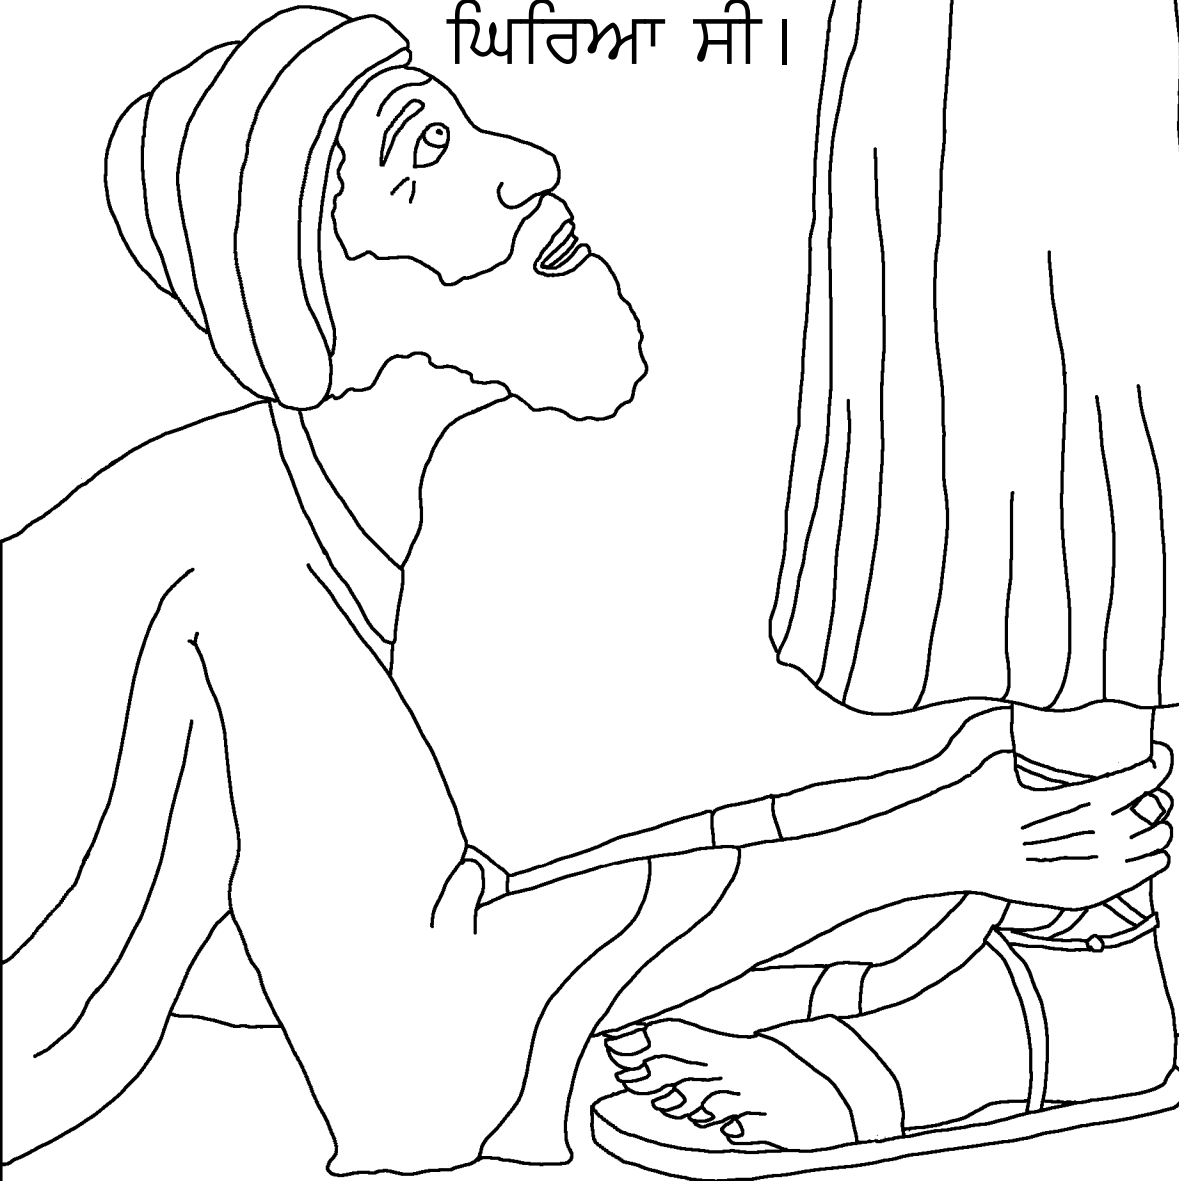 ਘਿਰਿਆ ਸੀ।